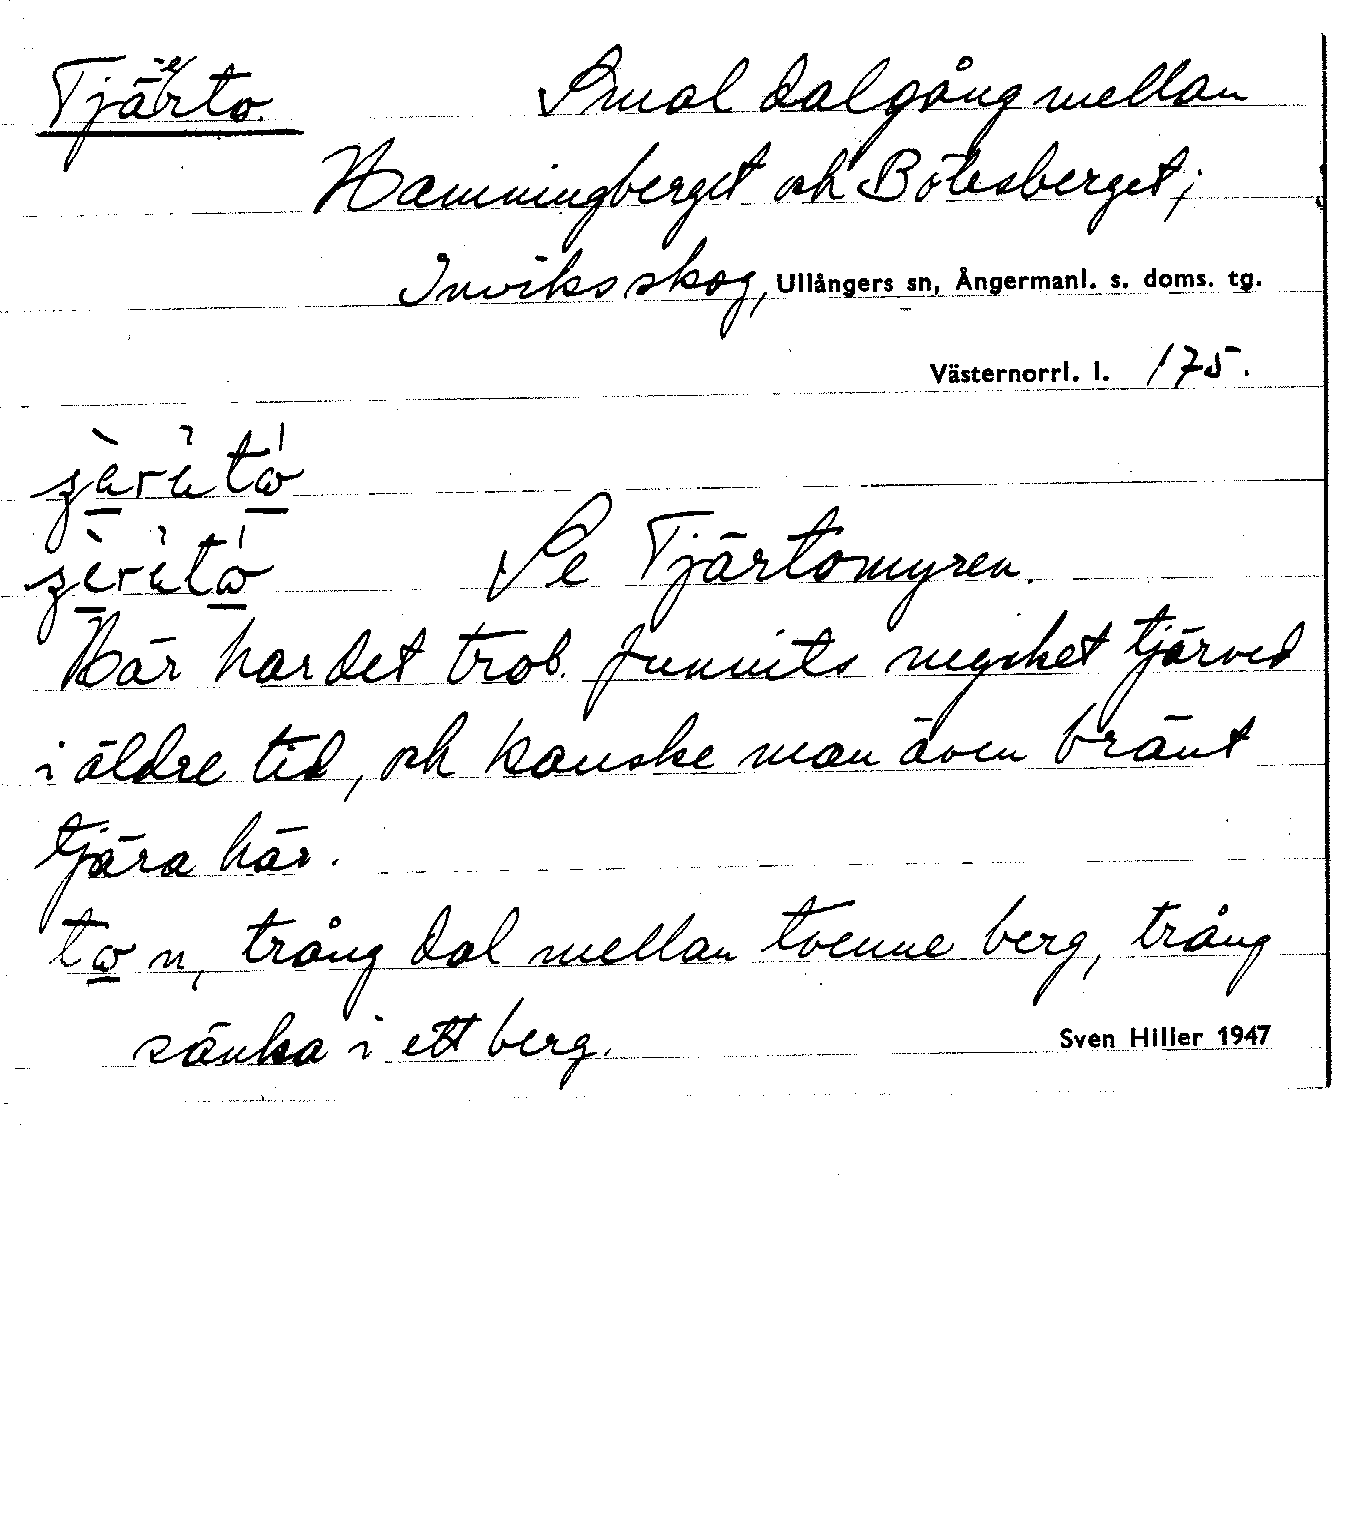 Tjärto. Smal dalgång mellan
Hamningberget och Bölesberget;
Inviks skog, Ullångers sn, Ångermanl. s. doms. tg.
Västernorrl. l. 175.
Se Tjärtomyren.
Här har det trol. funnits mycket tjärved
i äldre tid, och kanske man även bränt
tjära här.
to n, trång dal mellan tvenne berg, trång
sänka i ett berg.
Sven Hiller 1947